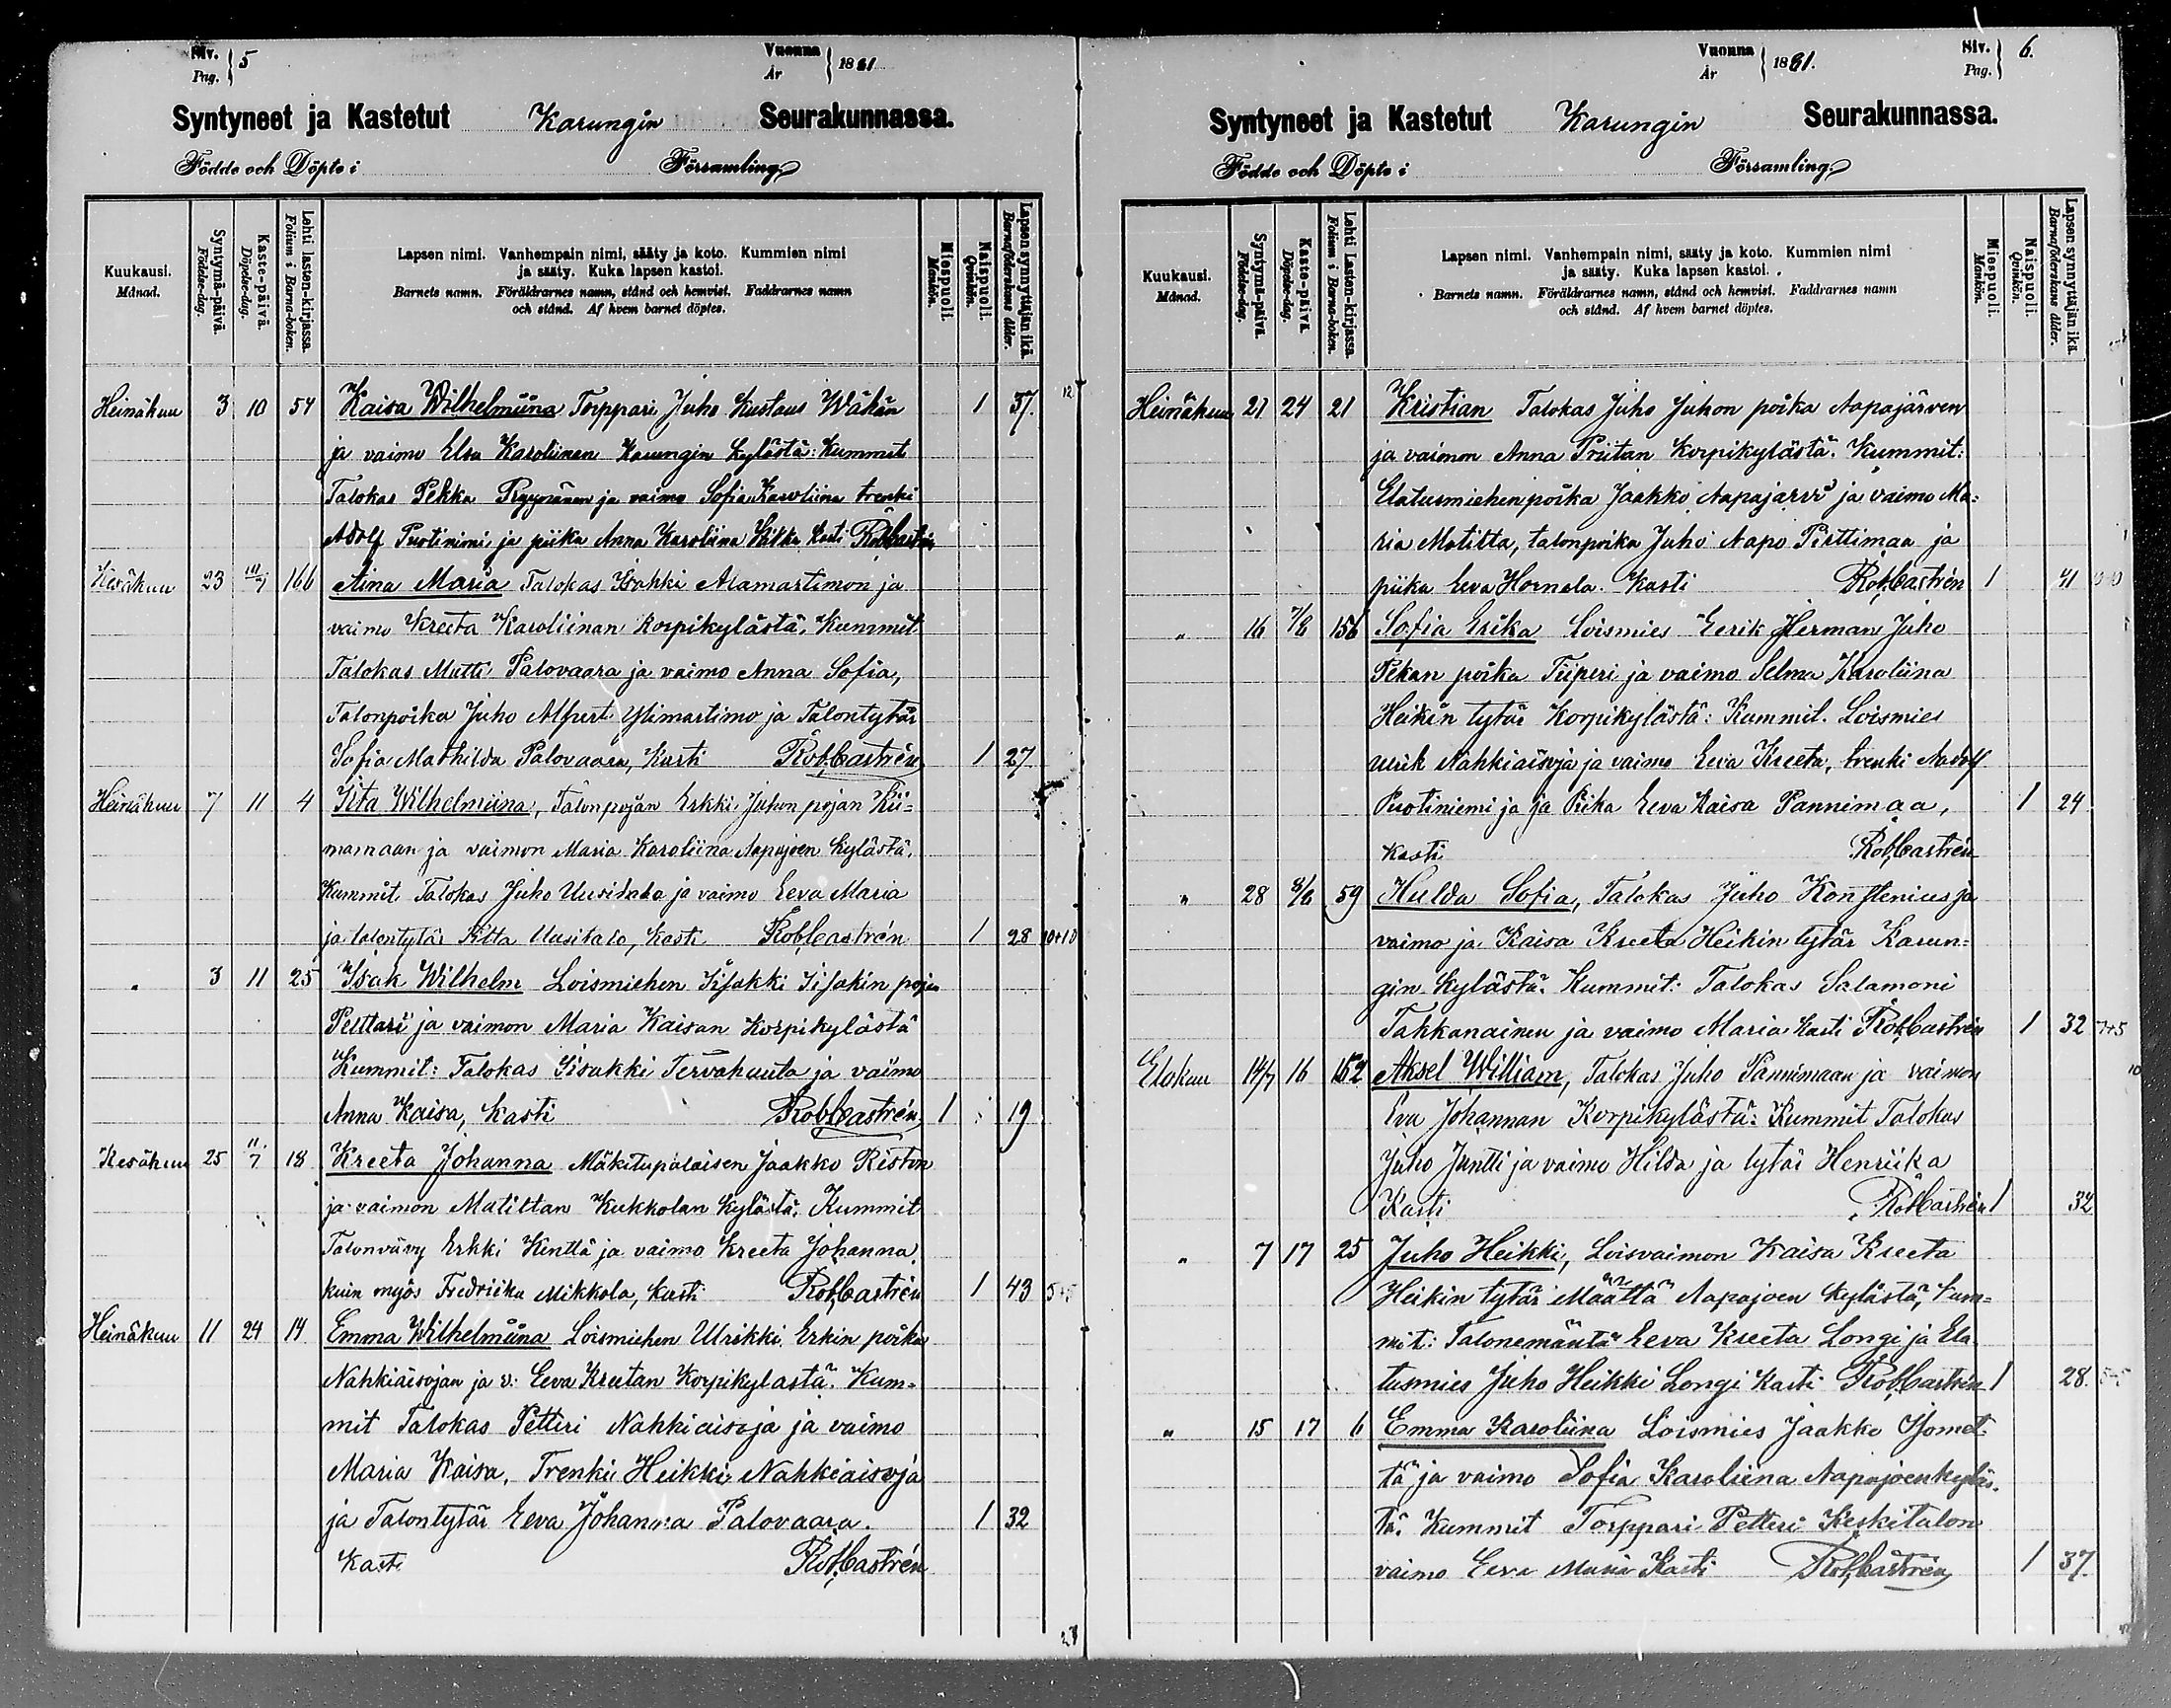 Siv. Pag. 5
Vuonna År 1881
Syntyneet ja Kastetut Karungin Seurakunnassa.
Födde och Döpte i Församling
Kuukausi. Månad.
Syntymä-päivä. Födelse-dag.
Kaste-päivä. Döpelse-dag.
Lehti lasten-kirjassa. Folium i Barna-boken.
Lapsen nimi. Vanhempain nimi, sääty ja koto. Kummien nimi
ja sääty. Kuka lapsen kastoi.
Barnets namn. Föräldrarnes namn, stånd och hemvist. Faddrarnes namn
och stånd. Af hvem barnet döptes.
Miespuoli. Mankön.
Naispuoli. Qvinkön.
Lapsen synnyttäjän ikä. Barnaföderskans ålder.
Heinäkuu 3 10 54 Kaisa Wilhelmiina Torppari Juho Kustaus Wähän 1 37.
ja vaimo Elsa Karoliinan Karungin kylästä: Kummit
Talokas Pekka ja vaimo Sofia Karoliina trenki
Adolf Puotinimi ja piika Anna Karoliina Kasti Rob. Castrén
Kesäkuu 23 10/7 166 Aina Maria Talokas Isahki Alamartimon ja
vaimo Kreeta Karoliinan Korpikylästä. Kummit
Talokas Matti Palovaara ja vaimo Anna Sofia,
Talonpoika Juho Alfurt Ylimartimo ja Talontytär
Sofia Mathilda Palovaara, Kasti Rob. Castrén 1 27
Heinäkuu 7 11 4 Iita Wilhelmiina, Talonpojan Erkki Juhon pojan Kii=
mamaan ja vaimon Maria Karoliina Aapajoen kylästä.
Kummit Talokas Juho Uusitalo ja vaimo Eeva Maria
ja talontytär Iitta Uusitalo, kasti Rob. Castrén 1 28 10+10
" 3 11 25 Isak Wilhelm Loismiehen Iisakki Iisakin pojan
Pelttari ja vaimon Maria Kaisan Korpikylästä
Kummit: Talokas Iisakki Tervahauta ja vaimo
Anna Kaisa, kasti Rob. Castrén 1 19
Kesäkuu 25 11/7 18 Kreeta Johanna Mäkitupalaisen Jaakko Riston
ja vaimon Matiltan Kukkolan kylästä. Kummit
Talonvävy Erkki Kenttä ja vaimo Kreeta Johanna
kuin myös Fredriika Mikkola, kasti Rob. Castrén 1 43 5+5
Heinäkuu 11 24 14 Emma Wilhelmiina Loismiehen Ulrikki Erkin poika
Nahkiäisojan ja v: Eeva Kreetan Korpikylästä. Kum=
mit Talokas Petteri Nahkiaisoja ja vaimo
Maria Kaisa, Trenki Heikki Nahkiaisoja
ja Talontytär Eeva Johanna Palovaara. 1 32
Kasti Rob. Castrén
Vuonna År 1881.
Siv. Pag. 6.
Syntyneet ja Kastetut Karungin Seurakunnassa.
Födde och Döpte i Församling
Kuukausi. Månad.
Syntymä-päivä. Födelse-dag.
Kaste-päivä. Döpelse-dag.
Lehti Lasten-kirjassa. Folium i Barna-boken.
Lapsen nimi. Vanhempain nimi, sääty ja koto. Kummien nimi
ja sääty. Kuka lapsen kastoi.
Barnets namn. Föräldrarnes namn, stånd och hemvist. Faddrarnes namn
och stånd. Af hvem barnet döptes.
Miespuoli. Mankön.
Naispuoli. Qvinkön.
Lapsen synnyttäjän ikä. Barnaföderskans ålder.
Heinäkuu 21 24 21 Kristian Talokas Juho Juhon poika Aapajärven
ja vaimon Anna Priitan Korpikylästä. Kummit:
Elatusmiehenpoika Jaakko Aapajarvi ja vaimo Ma=
ria Matilta, talonpoika Juho Aapo Perttimaa ja
piika Eeva Hornela. Kasti Rob. Castrén 1 41
" 16 7/8 156 Sofia Erika Loismies Eerik Herman Juho
Pekan poika Tiiperi ja vaimo Selma Karoliina
Heikin tytär Korpikylästä: Kummit. Loismies
Ulrik Nahkiäisoja ja vaimo Eeva Kreeta, trenki Aadolf
Puotiniemi ja ja Piika Eeva Kaisa Pannimaa, 1 24.
Kasti Rob. Castrén
" 28 8/8 59 Hulda Sofia, Talokas Juho Konstenius ja
vaimo ja Kaisa Kreeta Heikin tytär Karun=
gin kylästä. Kummit: Talokas Salamoni
Takkanainen ja vaimo Maria kasti Rob. Castrén 1 32
Elokuu 14/7 16 152 Aksel William, Talokas Juho Pannimaan ja vaimon
Eva Johannan Korpikylästä: Kummit Talokas
Juho Juntti ja vaimo Hilda ja tytär Henriika
Kasti Rob. Castrén 1 32
" 7 17 25 Juho Heikki, Loisvaimon Kaisa Kreeta
Heikin tytär Määttä Aapajoen kylästä, kum=
mit: Talonemäntä Eeva Kreeta Longi ja Ela=
tusmies Juho Heikki Longi kasti Rob. Castrén 1 28.
" 15 17 6 Emma Karoliina Loismies Jaakko Ojomet=
tä ja vaimo Sofia Karoliina Aapajoenkyläs=
tä. Kummit Torppari Petteri Keskitalon
vaimo Eeva Maria Kasti Rob. Castrén 1 37.